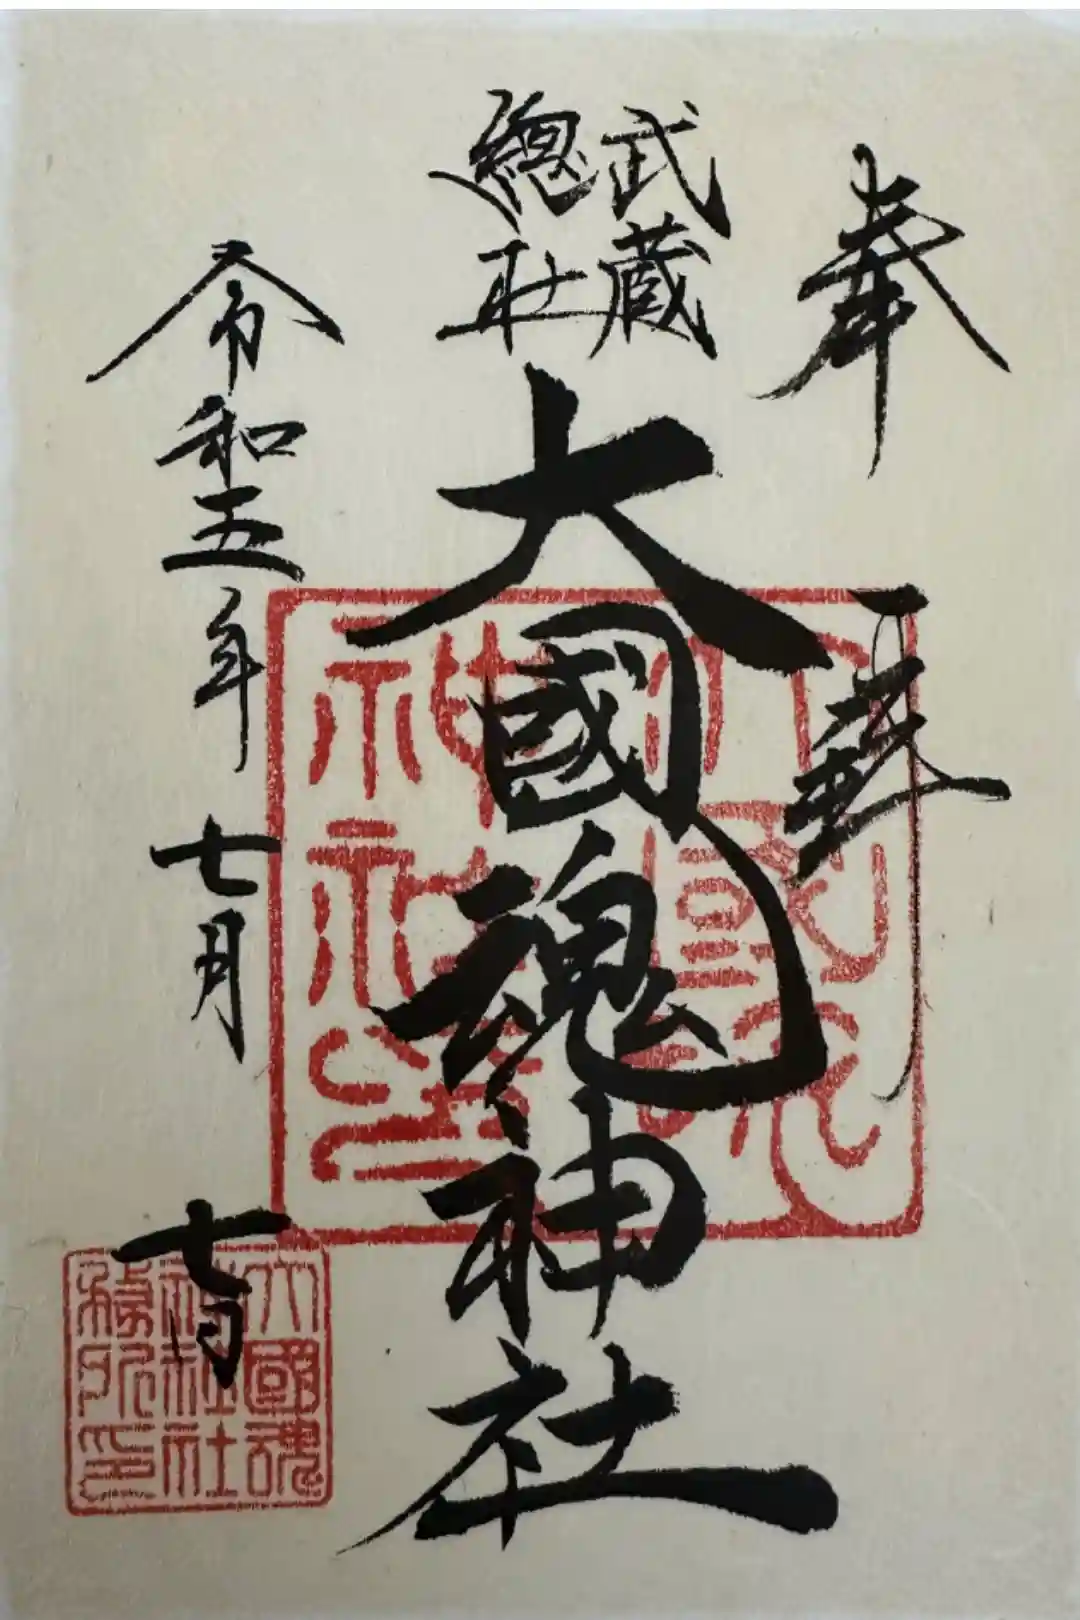 奉拝
武蔵
総社
大國魂神社
令和五年 七月 七日
大國魂
神社之印
大國魂
神社社
務所印